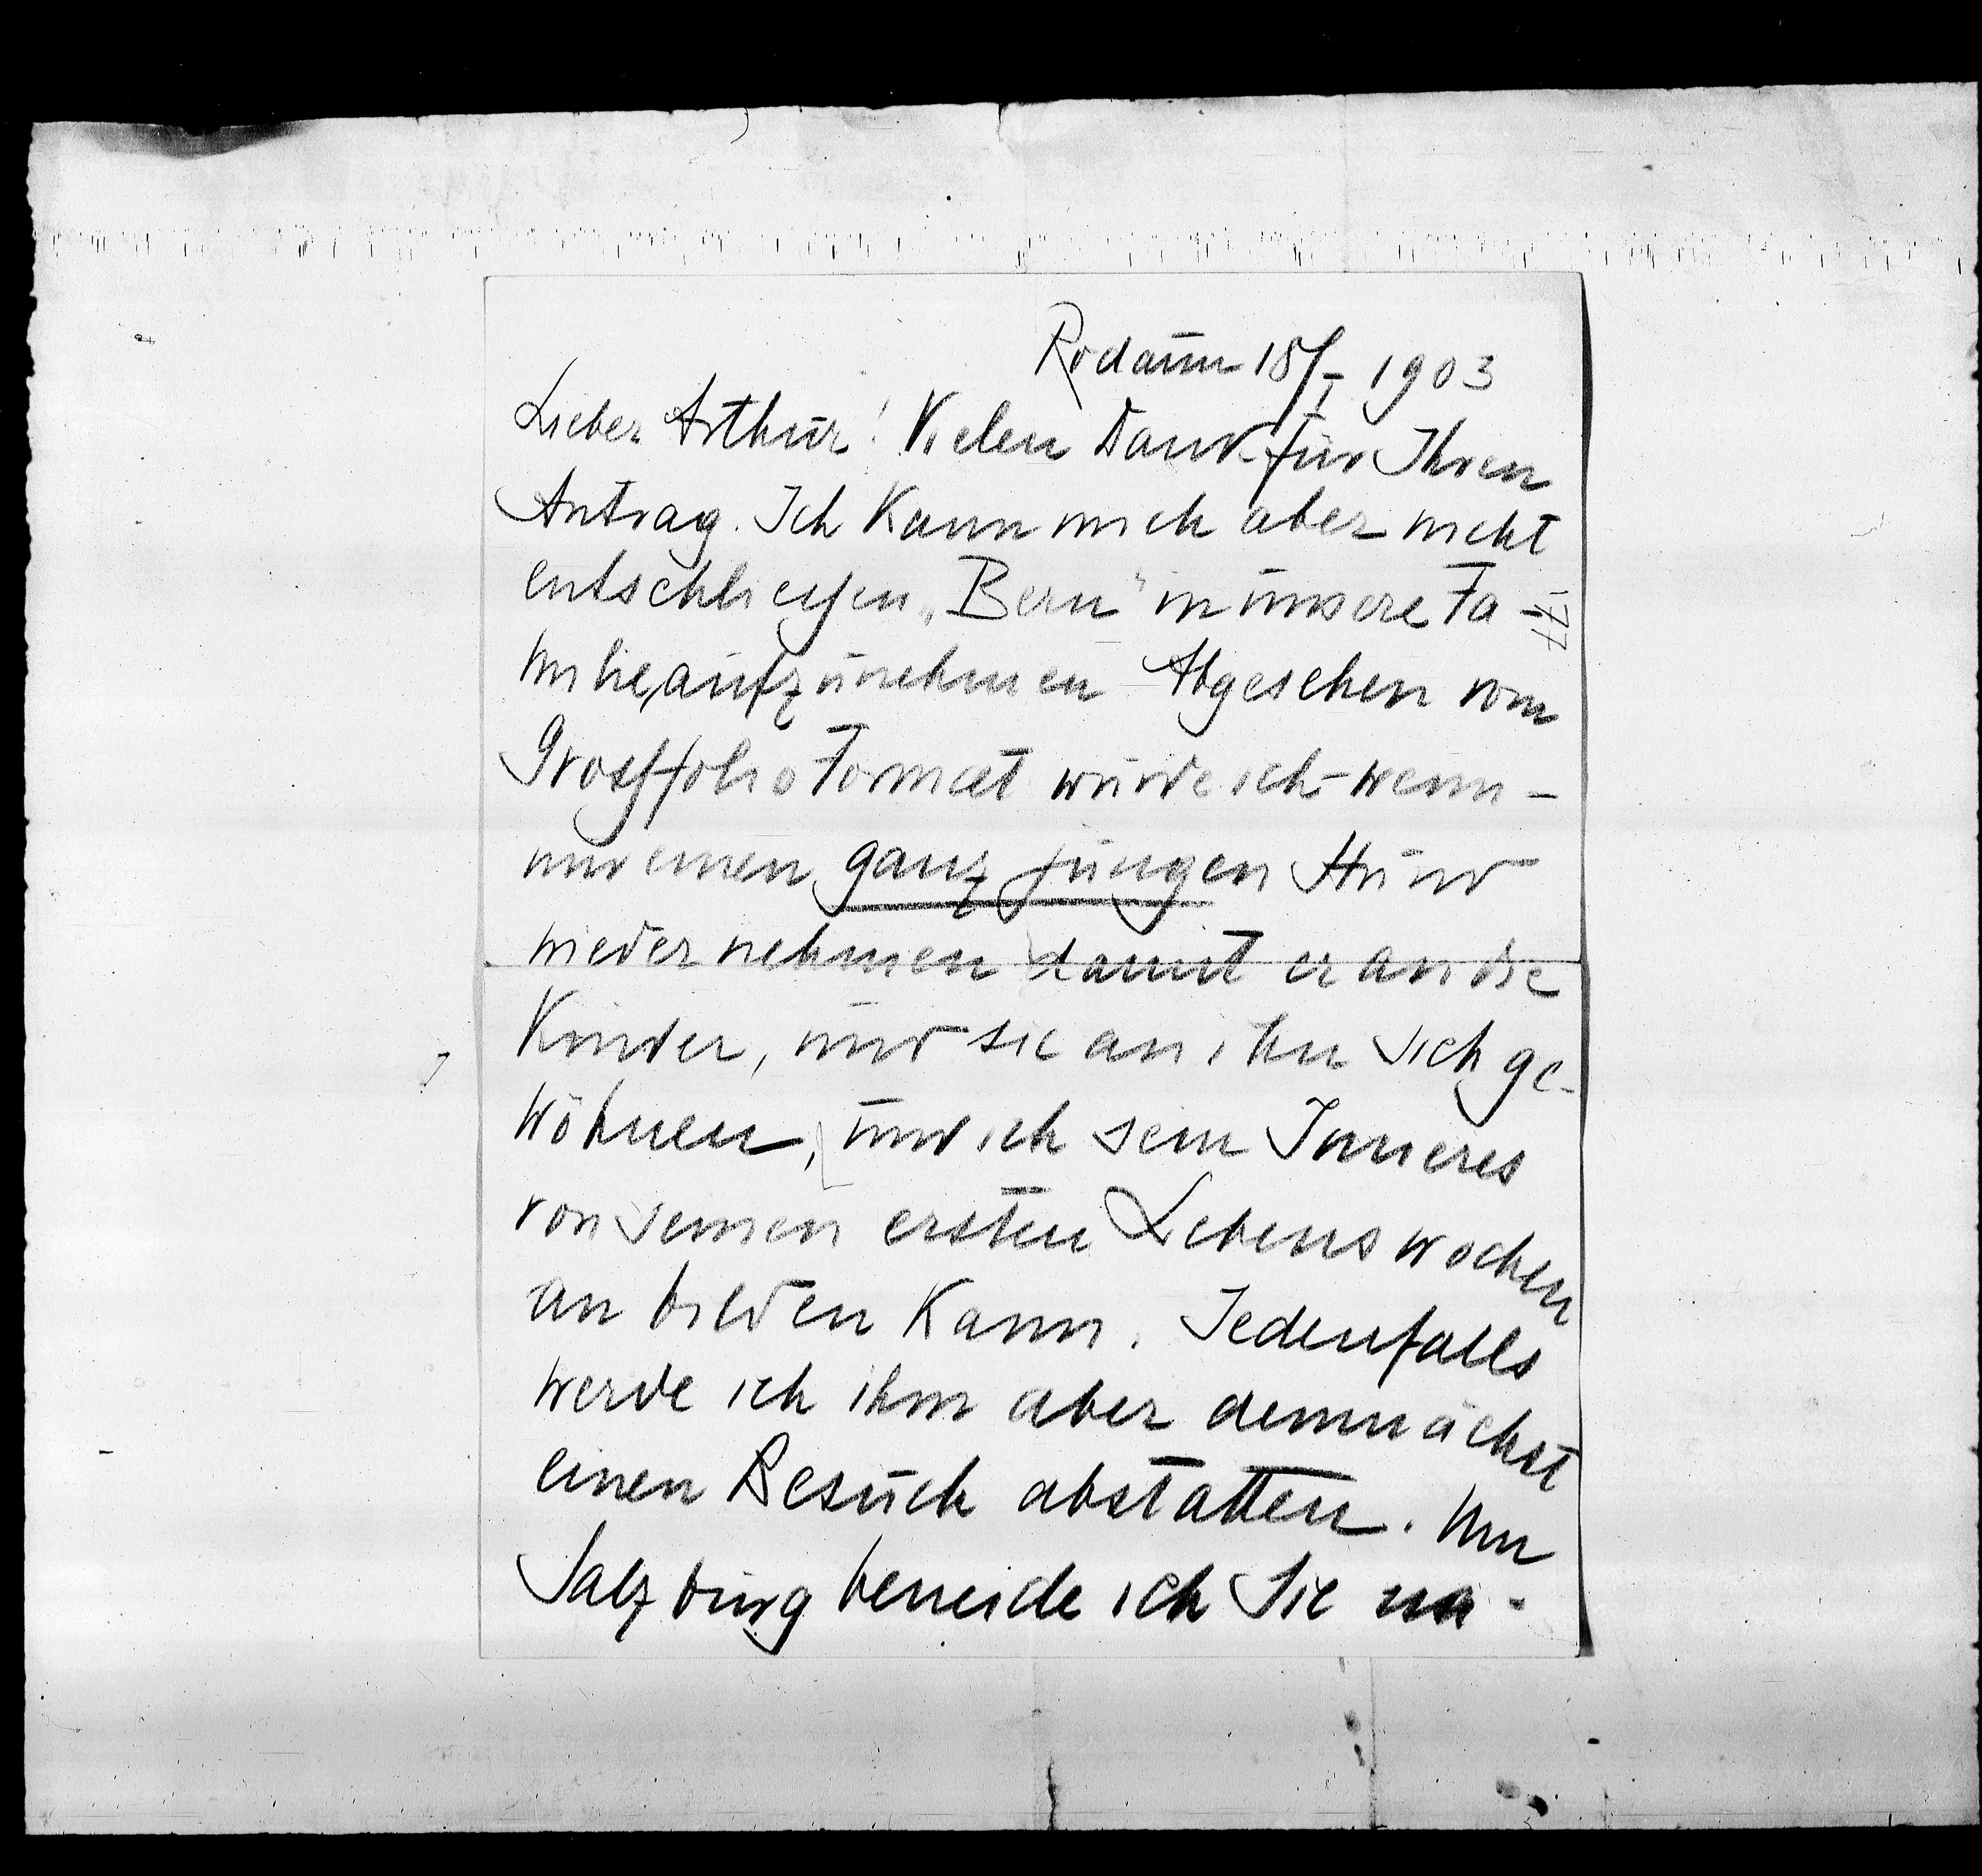 Rodaun 18/I 1903
Lieber Arthur! Vielen Dank für Ihren
Antrag. Ich kann mich aber nicht
entschliessen „Bern“ in unsere Fa-
milie aufzunehmen Abgesehen vom
Grossfolio Format würde ich – wenn –
nur einen ganz jungen Hund
wieder nehmen damit er an die
Kinder, und sie an ihn sich ge-
wöhnen, und ich sein Inneres
von seinen ersten Lebenswochen
an bilden kann. Jedenfalls
werde ich ihm aber demnächst
einen Besuch abstatten. Um
Salzburg beneide ich Sie na-